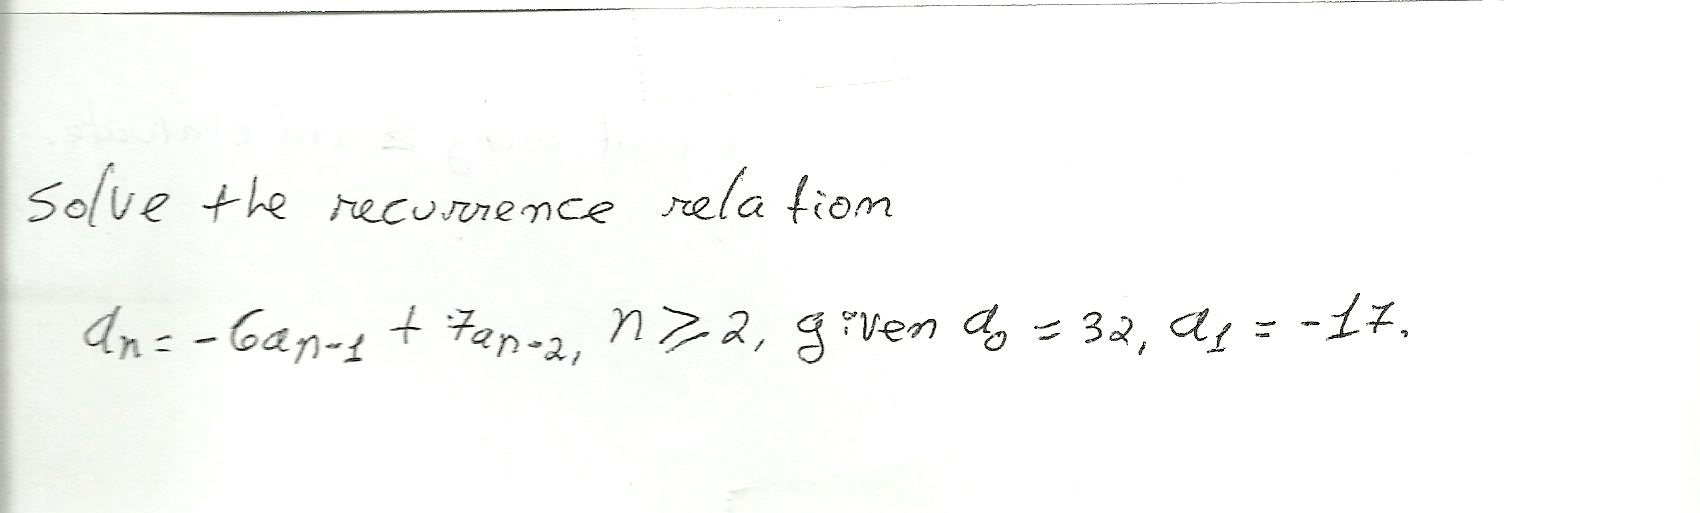 Solve the recurrence relation
an = -6an-1 + 7an-2, n ≥ 2, given a0 = 32, a1 = -17.